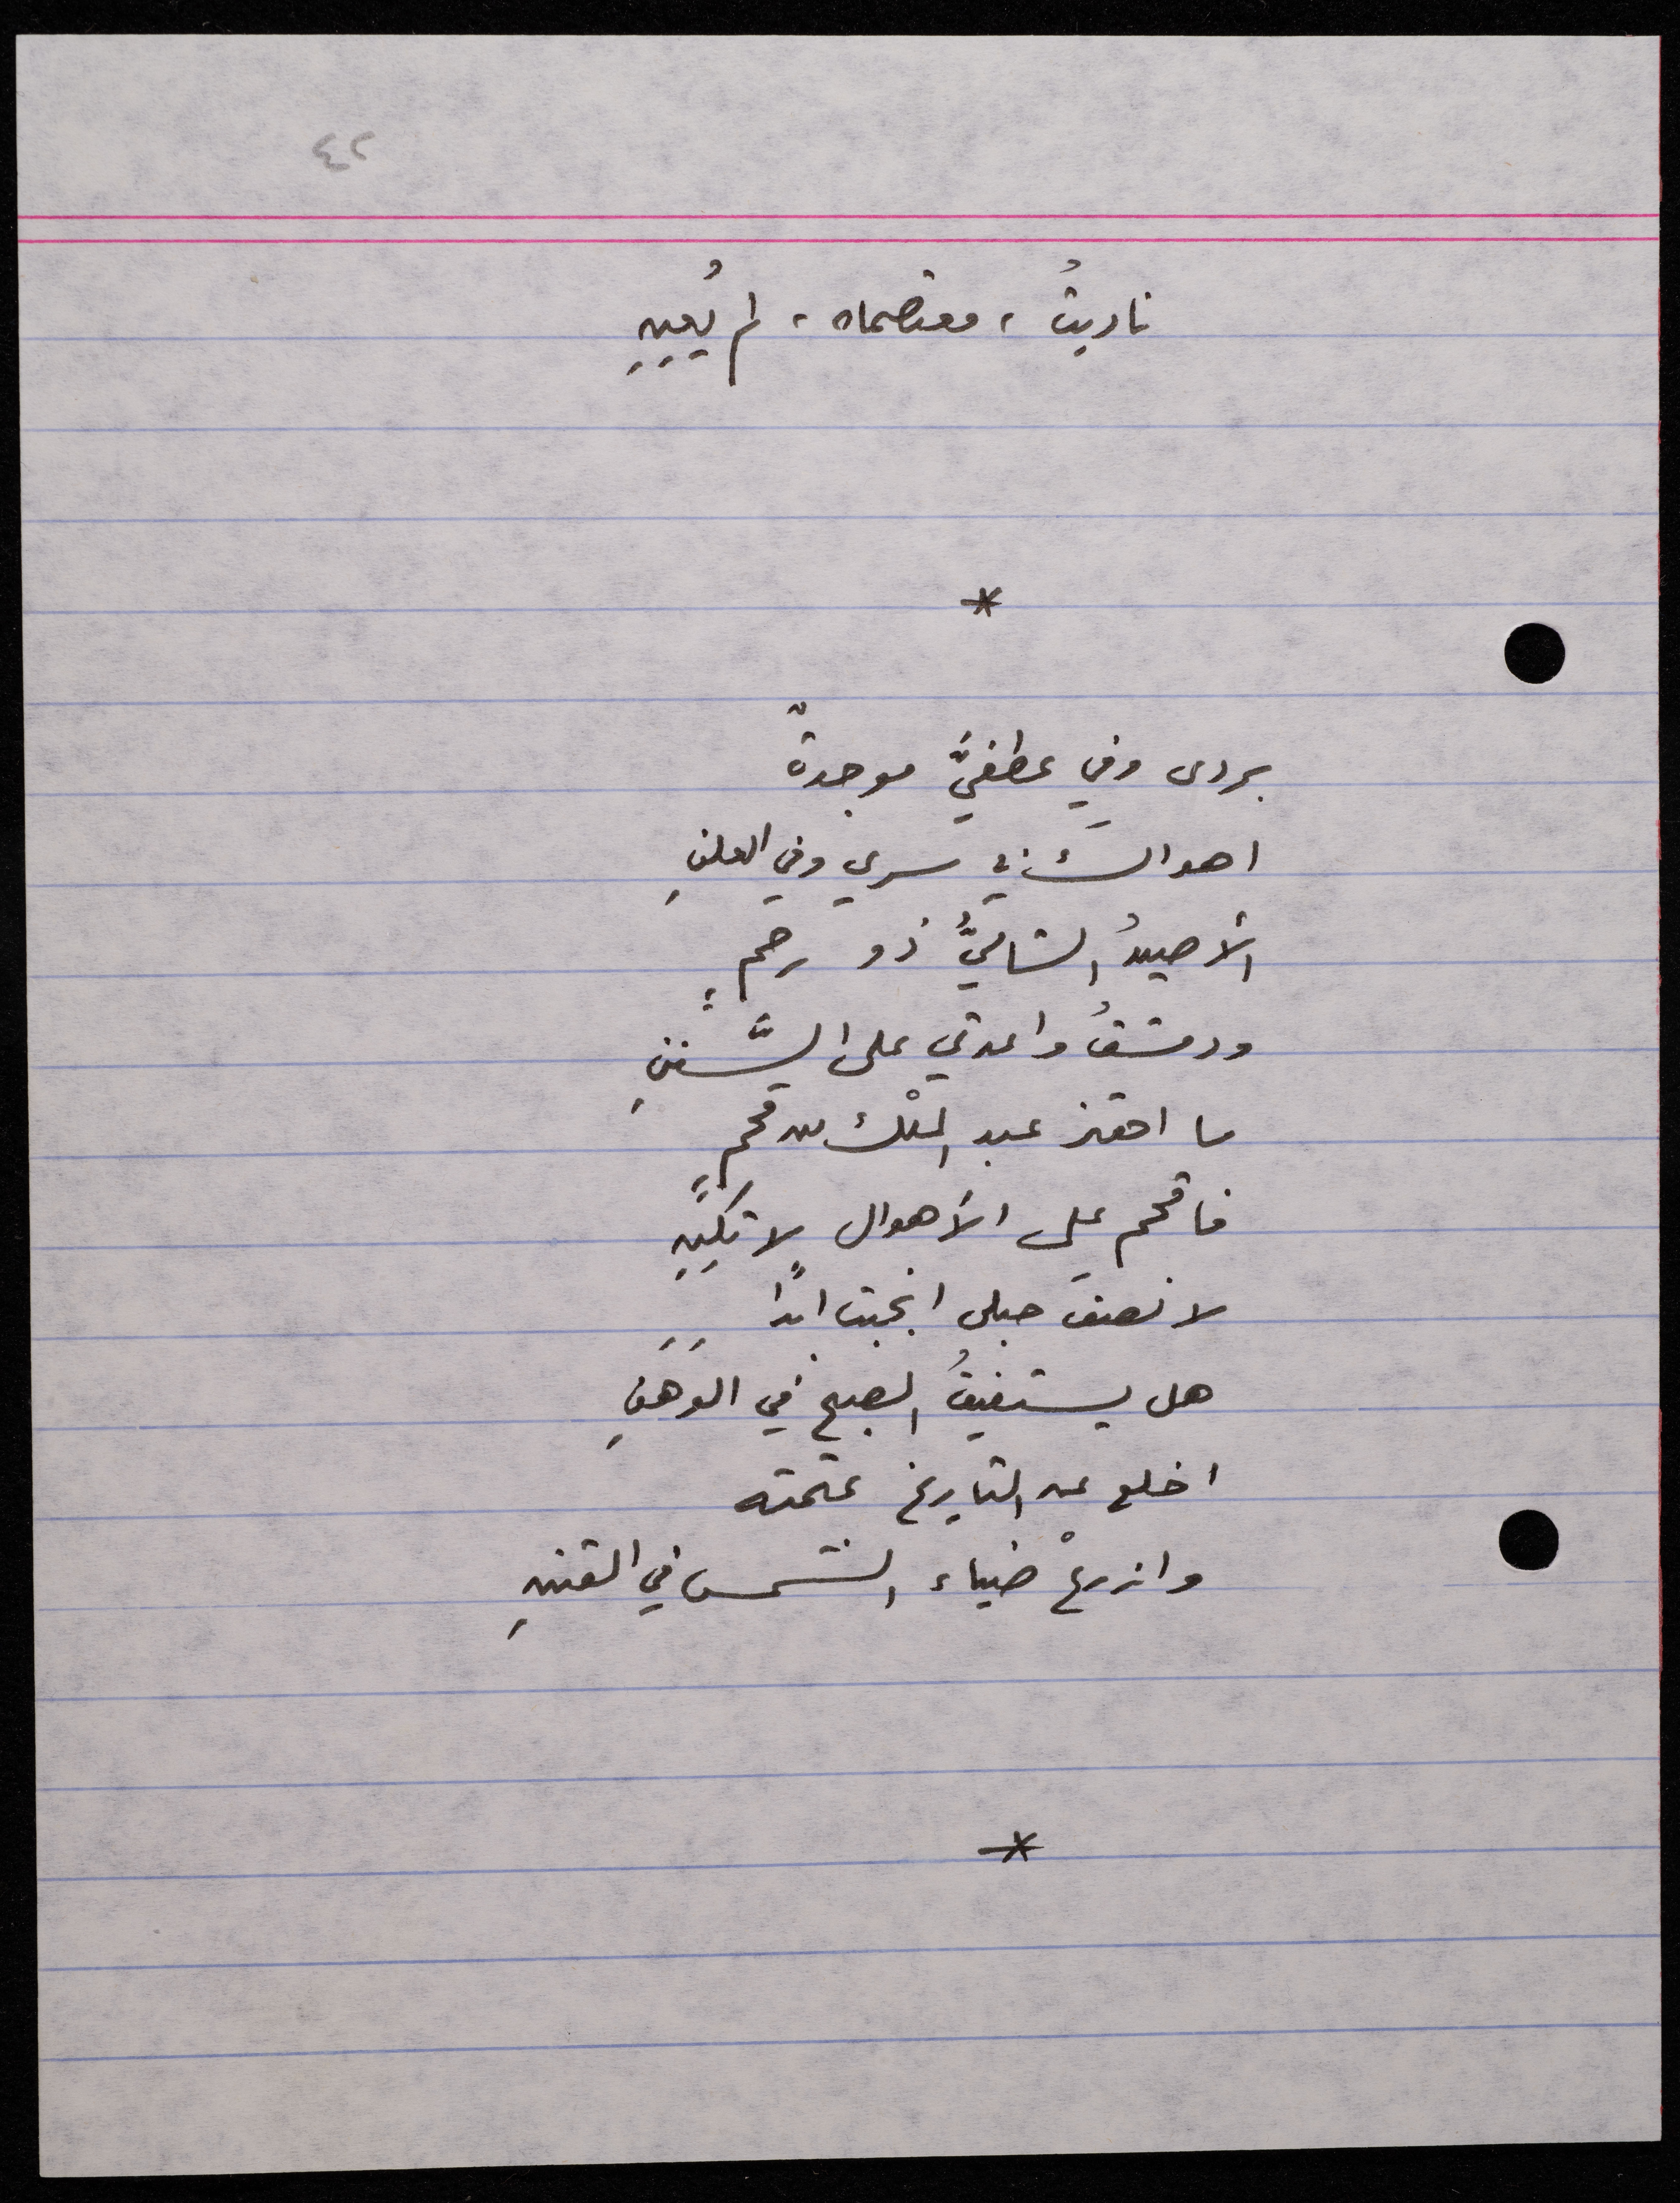 ٤٢
ناديتُ ، معتصماه ، لم يُعِنِ
*
بردى وفي عطفيَّ موجدةٌ
اهواكَ في سري وفي العلنِ
الأصيدُ الشاميُّ ذو رحمٍ
ودمشقُ واعدتي على السَّفنِ
ما احتز عبد الملْك من قحمٍ
فاقحم على الأهوال لا تَكِنِ
لا نصفَ حبلى انجبت ابداً
هل يستفيقُ الصبح في الوَهَنِ
اخلع عن التاريخ عتمته
وازرعْ ضياء الشمس في القننِ
*